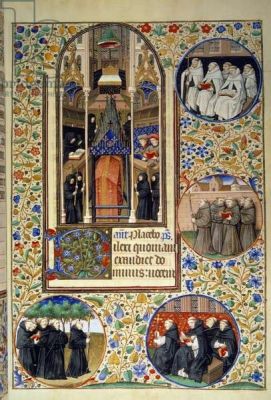 añt Placebo. pš
Dilexi quoniam
exaudiet do
minus: uocem